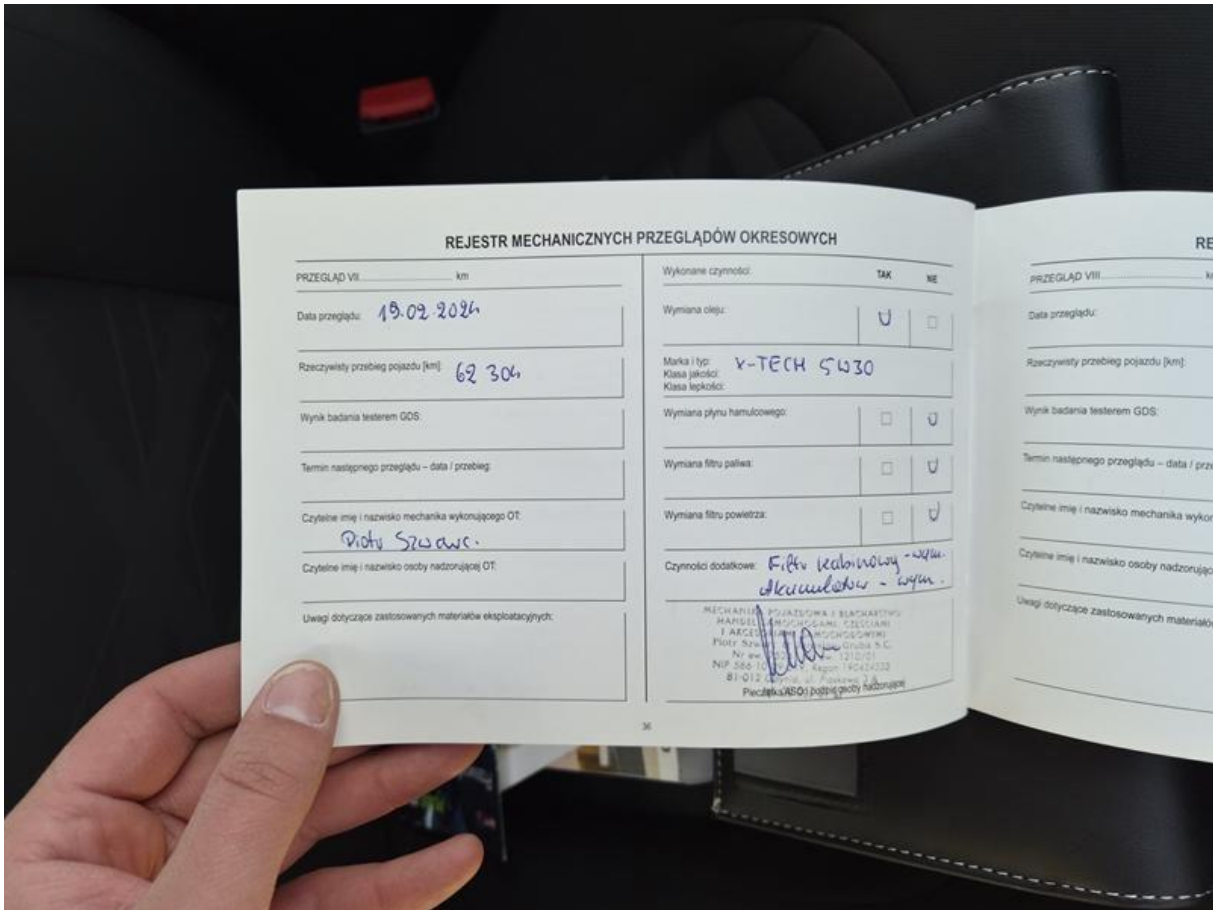 REJESTR MECHANICZNYCH PRZEGLĄDÓW OKRESOWYCH
PRZEGLĄD VII km
Data przeglądu: 19.02.2024
Rzeczywisty przebieg pojazdu [km]: 62 304
Wynik badania testerem GDS:
Termin następnego przeglądu – data / przebieg:
Czytelne imię i nazwisko mechanika wykonującego OT:
Piotr Szwarc.
Czytelne imię i nazwisko osoby nadzorującej OT:
Uwagi dotyczące zastosowanych materiałów eksploatacyjnych:
Wykonane czynności: TAK NIE
Wymiana oleju:
Marka i typ: X-TECH 5W30
Klasa jakości:
Klasa lepkości:
Wymiana płynu hamulcowego:
Wymiana filtru paliwa:
Wymiana filtru powietrza:
Czynności dodatkowe: Filtr kabinowy - wym.
Akumulator - wym.
MECHANIKA POJAZDOWA I BLACHARSTWO
HANDEL SAMOCHODAMI, CZĘŚCIAMI
I AKCESORIAMI SAMOCHODOWYMI
Piotr Gruba S.C.
Nr 1210/01
NIP 586-10 Regon 190424532
81-012 Gdynia, ul. Piaskowa 2A
Pieczątka ASO i podpis osoby nadzorującej
36
RE
PRZEGLĄD VIII
Data przeglądu:
Rzeczywisty przebieg pojazdu [km]:
Wynik badania testerem GDS:
Termin następnego przeglądu – data / prze
Czytelne imię i nazwisko mechanika wykor
Czytelne imię i nazwisko osoby nadzorując
Uwagi dotyczące zastosowanych materiałów